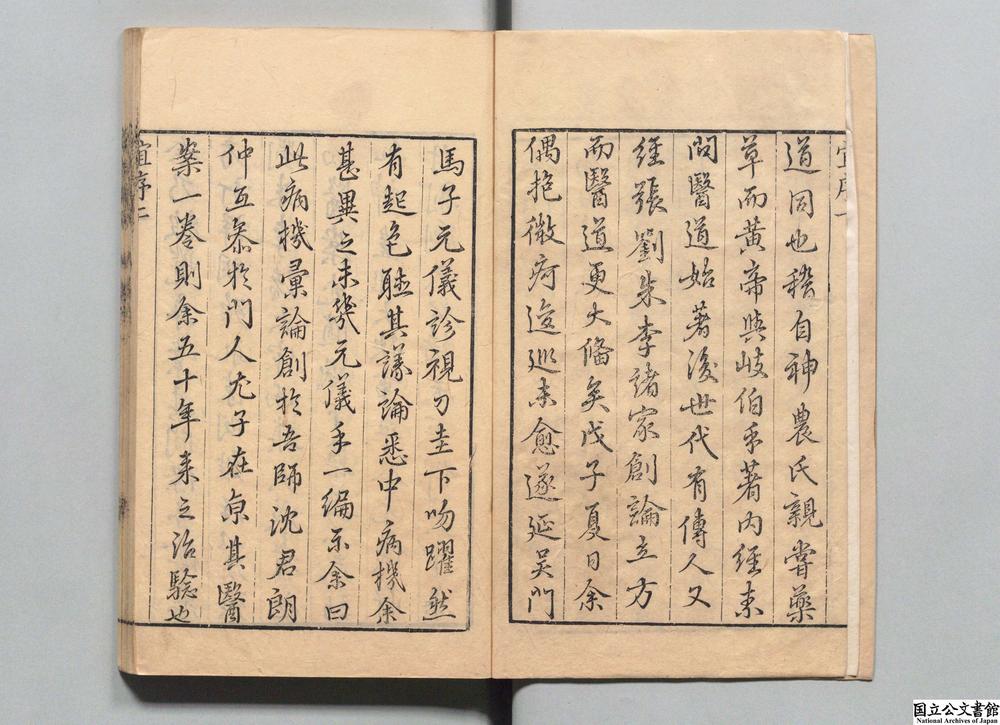 道同也稽自神農氏親嘗藥
草而黃帝與岐伯手著內經素
問醫道始著後世代有傳人又
經張劉朱李諸家創論立方
而醫道更大備矣戊子夏日余
偶抱微疴逡巡未愈遂延吴門
馬子元儀診視刀圭下吻躍然
有起色聽其議論悉中病機余
甚異之未幾元儀手一編示余曰
此病機彙論創於吾師沈君朗
仲互叅於門人尤子在京其醫
案一卷則余五十年来之治驗也
序二
国立公文書館
National Archives of Japan